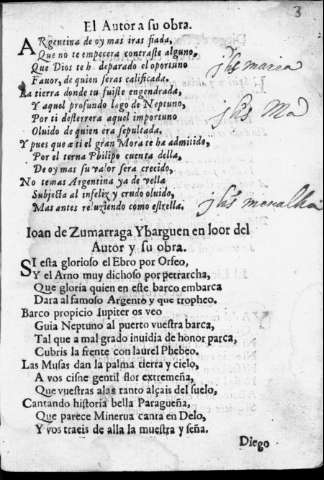 3
El Autor a su obra.
ARgentina de oy mas iras fiada,
Que no te empecera contraste alguno,
Que Dios te ha deparado el oportuno
Fauor, de quien seras calificada.
La tierra donde tu fuiste engendrada,
Y aquel profundo lago de Neptuno,
Por ti desterrera aquel importuno
Oluido de quien era sepultada.
Y pues que a ti el gran Mora te ha admitido,
Por el terna Philipo cuenta della,
De oy mas su valor sera crecido,
No temas Argentina ya de vella
Subjecta al infelix y crudo oluido,
Mas antes reluziendo como estrella.
jhs maria
jhs Ma
jhs
Ioan de Zumarraga Ybarguen en loor del
Autor y su obra.
SI esta glorioso el Ebro por Orfeo,
Y el Arno muy dichoso por petrarcha,
Que gloria quien en este barco embarca
Dara al famoso Argento y que tropheo.
Barco propicio Iupiter os veo
Guia Neptuno al puerto vuestra barca,
Tal que a mal grado inuidia de honor parca,
Cubris la frente con laurel Phebeo.
Las Musas dan la palma tierra y cielo,
A vos cisne gentil flor extremeña,
Que vuestras alas tanto alçais del suelo,
Cantando historia bella Paragueña,
Que parece Minerua canta en Delo,
Y vos traeis de alla la muestra y seña.
Diego